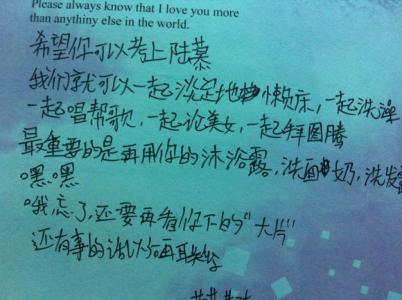 Please always know that I love you more
than anythiny else in the world.
希望你可以考上陆慕
我们就可以一起淡定地懒床，一起洗澡
一起唱帮歌，一起论美女，一起拜图腾
最重要的是再用你的沐浴露，洗面奶，洗发露
。嘿。嘿
哦忘了，还要再看你下的“大片”
还有事的话以后再联